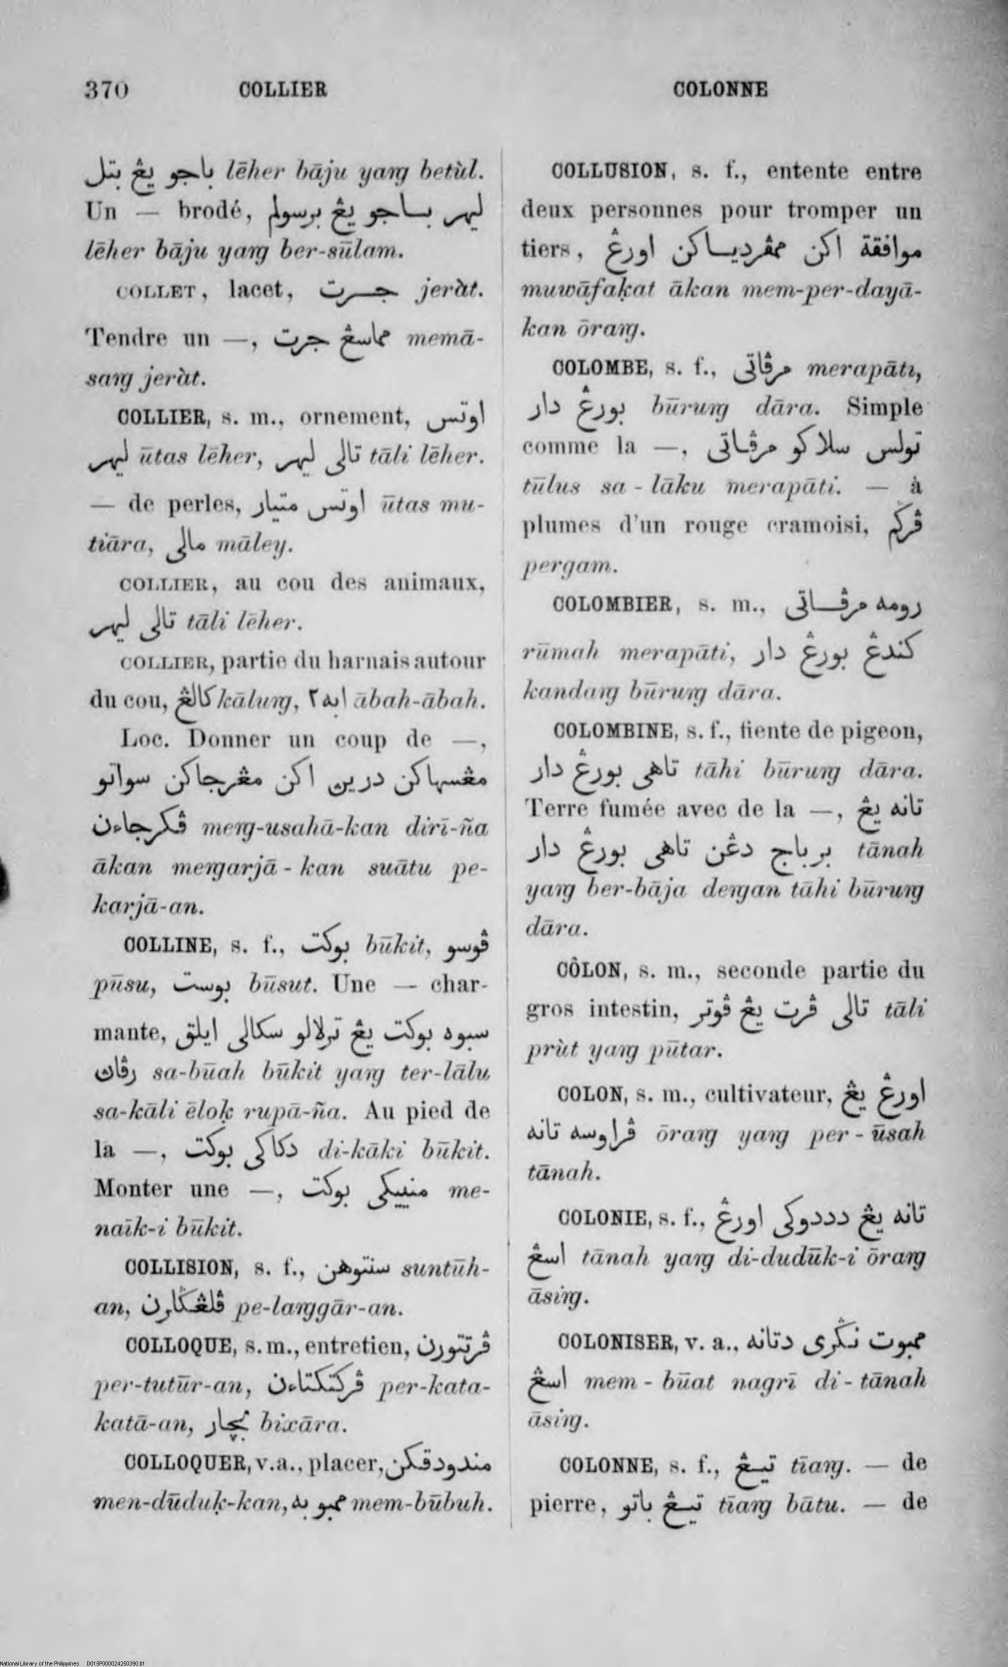 370 COLLIER COLONNE
باجو يڠ بتل lēher bāju yaŋ betùl.
Un — brodé, ليهر باجو يڠ برسولم
lēher bāju yaŋ ber-sūlam.
COLLET, lacet, جرت jeràt.
Tendre un —, مماسڠ جرت memā-
saŋ jeràt.
COLLIER, s. m., ornement, اوتس
ليهر ūtas lēher, تالى ليهر tāli lēher.
— de perles, اوتس متيار ūtas mu-
tiāra, مالى māley.
COLLIER, au cou des animaux,
تالى ليهر tāli lēher.
COLLIER, partie du harnais autour
du cou, كالڠ kāluŋ, ابه٢ ābah-ābah.
Loc. Donner un coup de —,
مڠسهاكن درين اكن مڠرجاكن سواتو
ڤكرجاءن meŋ-usahā-kan dirī-ña
ākan meŋarjā-kan suātu pe-
karjā-an.
COLLINE, s. f., بوكت būkit, ڤوسو
pūsu, بوست būsut. Une — char-
mante, سبوه بوكت يڠ ترلالو سكالى ايلق
رڤان sa-būah būkit yaŋ ter-lālu
sa-kāli ēloḳ rupā-ña. Au pied de
la —, دكاكى بوكت di-kāki būkit.
Monter une —, منييكى بوكت me-
naīk-i būkit.
COLLISION, s. f., سنتوهن suntūh-
an, ڤلڠݢارن pe-laŋgār-an.
COLLOQUE, s. m., entretien, ڤرتتورن
per-tutūr-an, ڤركتكتاءن per-kata-
katā-an, بچار bixāra.
COLLOQUER, v. a., placer, مندودقكن
men-dūduḳ-kan, ممبوبه mem-būbuh.
COLLUSION, s. f., entente entre
deux personnes pour tromper un
tiers, موافقة اكن ممڤردياكن اورڠ
muwāfaḳat ākan mem-per-dayā-
kan ōraŋ.
COLOMBE, s. f., مرڤاتى merapāti,
بورڠ دار būruŋ dāra. Simple
comme la —, تولس سلاكو مرڤاتى
tūlus sa-lāku merapāti. — à
plumes d'un rouge cramoisi, ڤركم
pergam.
COLOMBIER, s. m., رومه مرڤاتى
rūmah merapāti, كندڠ بورڠ دار
kandaŋ būruŋ dāra.
COLOMBINE, s. f., fiente de pigeon,
تاهى بورڠ دار tāhi būruŋ dāra.
Terre fumée avec de la —, تانه يڠ
برباج دڠن تاهى بورڠ دار tānah
yaŋ ber-bāja deŋan tāhi būruŋ
dāra.
CÔLON, s. m., seconde partie du
gros intestin, تالى ڤرت يڠ ڤوتر tāli
prùt yaŋ pūtar.
COLON, s. m., cultivateur, اورڠ يڠ
ڤراوسه تانه ōraŋ yaŋ per-ūsah
tānah.
COLONIE, s. f., تانه يڠ ددودوكى اورڠ
اسڠ tānah yaŋ di-dudūk-i ōraŋ
āsiŋ.
COLONISER, v. a., ممبوت نݢرى دتانه
اسڠ mem-būat nagrī di-tānah
āsiŋ.
COLONNE, s. f., تيڠ tīaŋ. — de
pierre, تيڠ باتو tīaŋ bātu. — de
National Library of the Philippines